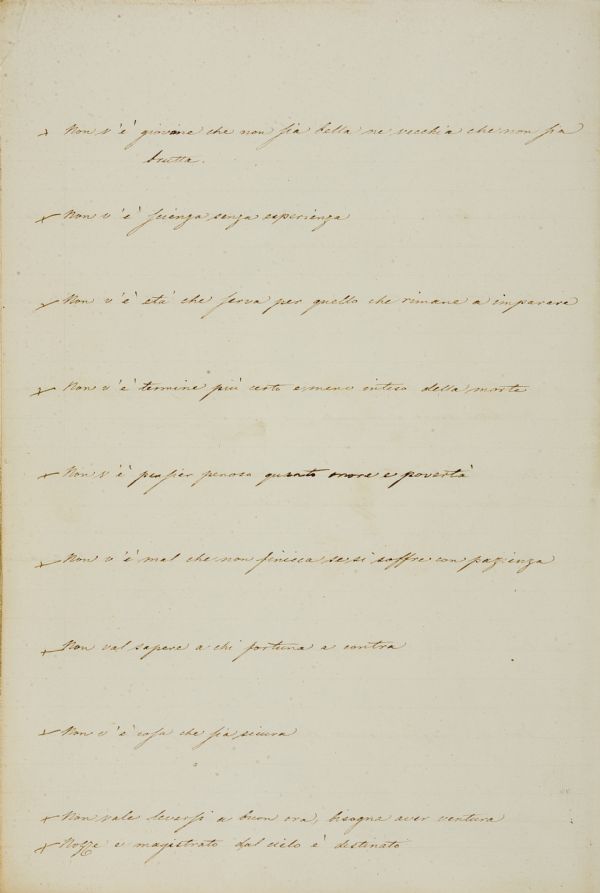 x Non v'è giovine che non sia bella ne vecchia che non sia
brutta.
x Non v'è scienza senza esperienza
x Non v'è età che serva per quello che rimane a imparare
x Non v'è termine più certo e meno inteso della morte
x Non v'è pensier penoso quanto onore e povertà
x Non v'è mal che non finisca se si soffre con pazienza
x Non val sapere a chi fortuna a contra
x Non v'è cosa che sia sicura
x Non vale levarsi a buon ora, bisogna aver ventura
x Nozze e magistrato dal cielo è destinato